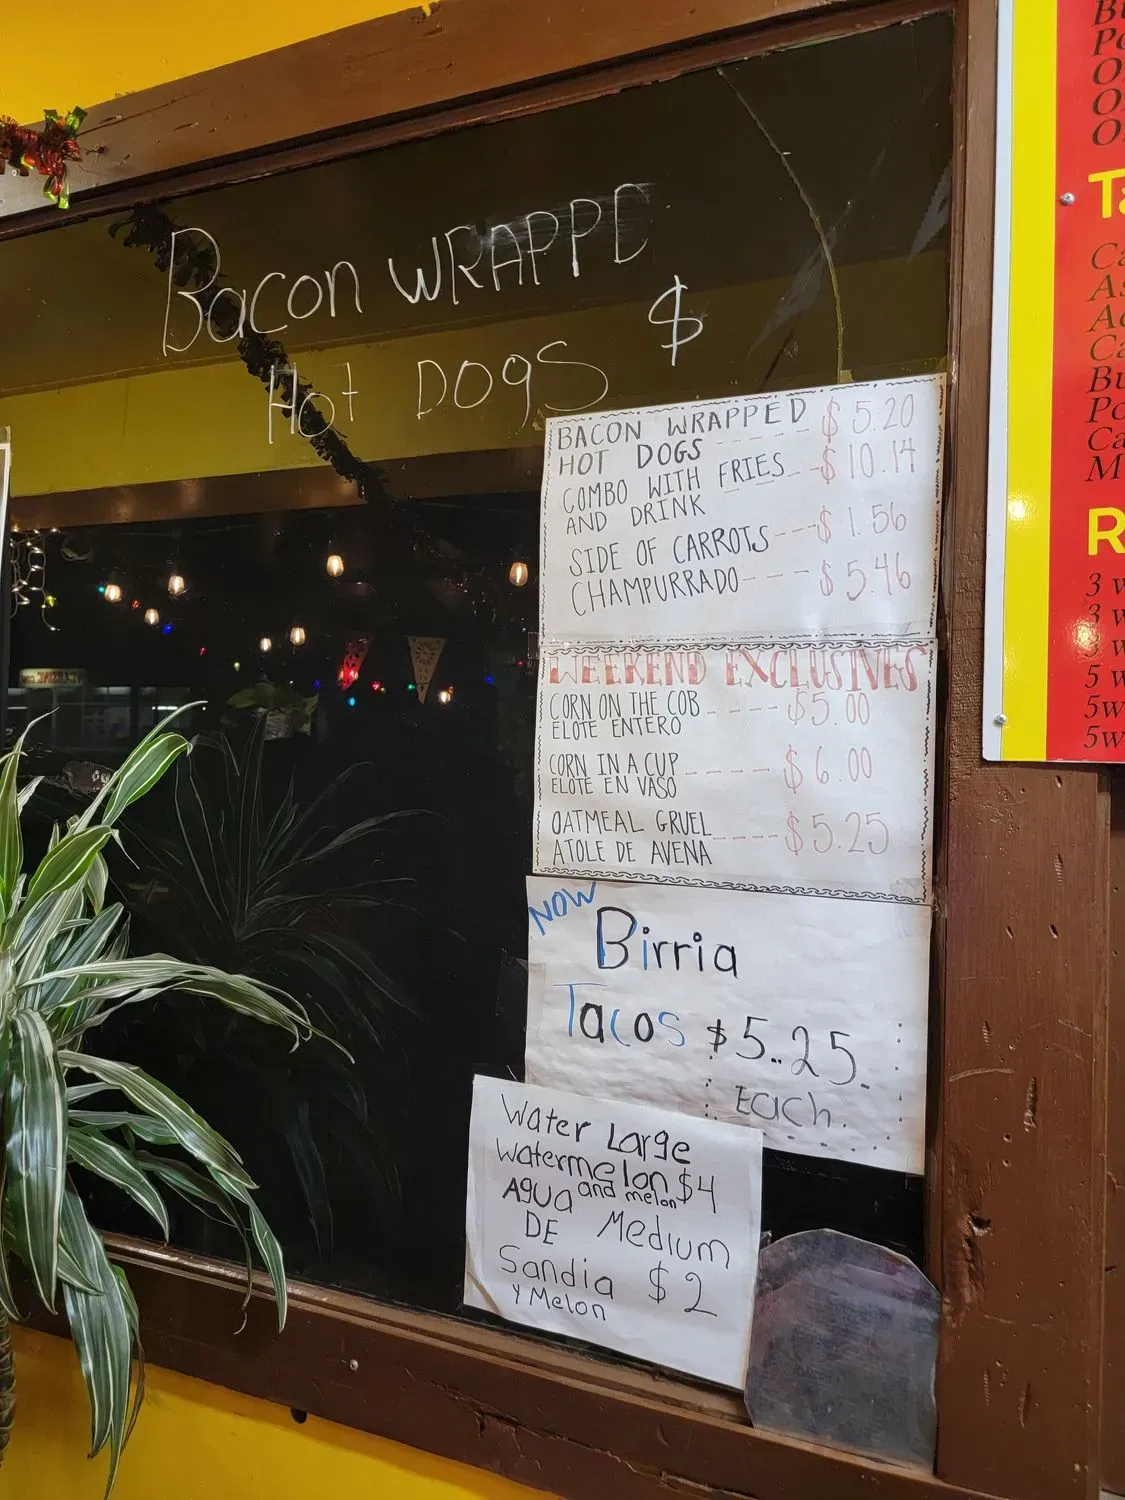 Bacon WRAPPE
Hot DOgS $
BACON WRAPPED
HOT DOGS ----- $5.20
COMBO WITH FRIES -- $10.14
AND DRINK
SIDE OF CARROTS --- $1.56
CHAMPURRADO ---- $5.46
WEEKEND EXCLUSIVES
CORN ON THE COB ---- $5.00
ELOTE ENTERO
CORN IN A CUP ----- $6.00
ELOTE EN VASO
OATMEAL GRUEL ---- $5.25
ATOLE DE AVENA
NOW
Birria
Tacos $5.25
Each.
Water Large
Watermelon $4
and melon
AgUa
DE Medium
Sandia $2
Y Melon
3 w
3 w
5 w
5w
5w